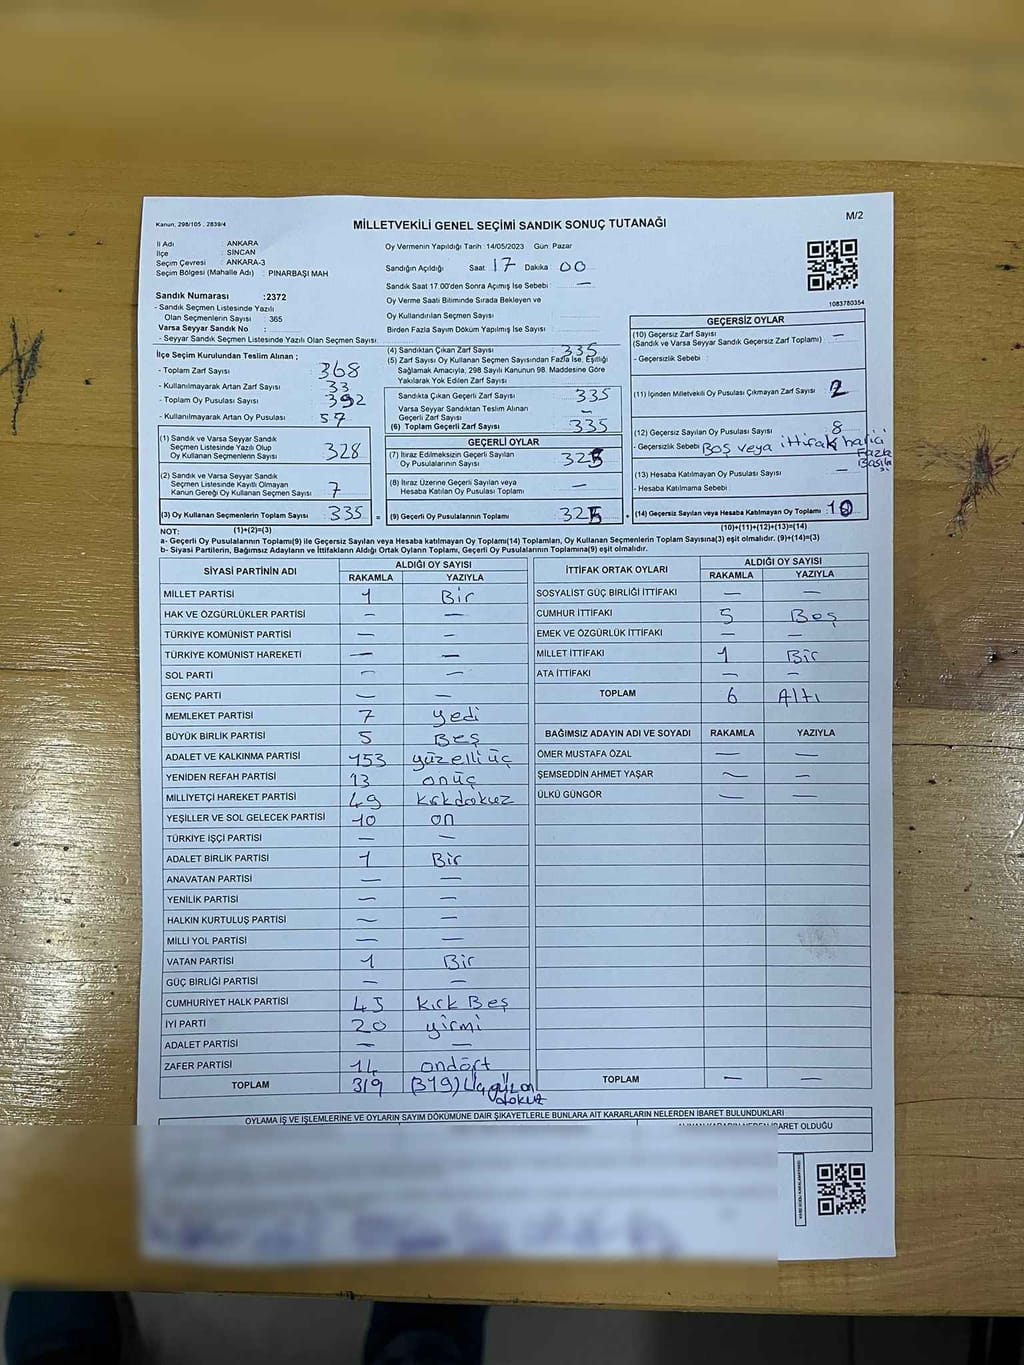 Kanun, 298/105 , 2839/4
MİLLETVEKİLİ GENEL SEÇİMİ SANDIK SONUÇ TUTANAĞI
M/2
İl Adı : ANKARA
İlçe : SİNCAN
Seçim Çevresi : ANKARA-3
Seçim Bölgesi (Mahalle Adı) : PINARBAŞI MAH
Sandık Numarası :2372
- Sandık Seçmen Listesinde Yazılı
Olan Seçmenlerin Sayısı : 365
Varsa Seyyar Sandık No :
- Seyyar Sandık Seçmen Listesinde Yazılı Olan Seçmen Sayısı:
Oy Vermenin Yapıldığı Tarih :14/05/2023 Gün: Pazar
Sandığın Açıldığı Saat 17 Dakika 00
Sandık Saat 17.00'den Sonra Açımış İse Sebebi : —
Oy Verme Saati Bitiminde Sırada Bekleyen ve
Oy Kullandırılan Seçmen Sayısı :
Birden Fazla Sayım Döküm Yapılmış İse Sayısı :
1083780354
İlçe Seçim Kurulundan Teslim Alınan ;
- Toplam Zarf Sayısı : 368
- Kullanılmayarak Artan Zarf Sayısı : 33
- Toplam Oy Pusulası Sayısı : 392
- Kullanılmayarak Artan Oy Pusulası : 57
(1) Sandık ve Varsa Seyyar Sandık
Seçmen Listesinde Yazılı Olup
Oy Kullanan Seçmenlerin Sayısı : 328
(2) Sandık ve Varsa Seyyar Sandık
Seçmen Listesinde Kayıtlı Olmayan
Kanun Gereği Oy Kullanan Seçmen Sayısı : 7
(3) Oy Kullanan Seçmenlerin Toplam Sayısı : 335
(1)+(2)=(3)
(4) Sandıktan Çıkan Zarf Sayısı : 335
(5) Zarf Sayısı Oy Kullanan Seçmen Sayısından Fazla İse, Eşitliği
Sağlamak Amacıyla; 298 Sayılı Kanunun 98. Maddesine Göre
Yakılarak Yok Edilen Zarf Sayısı :
Sandıkta Çıkan Geçerli Zarf Sayısı : 335
Varsa Seyyar Sandıktan Teslim Alınan
Geçerli Zarf Sayısı : —
(6) Toplam Geçerli Zarf Sayısı : 335
GEÇERLİ OYLAR
(7) İtiraz Edilmeksizin Geçerli Sayılan
Oy Pusulalarının Sayısı : 325
(8) İtiraz Üzerine Geçerli Sayılan veya
Hesaba Katılan Oy Pusulası Toplamı : —
= (9) Geçerli Oy Pusulalarının Toplamı : 325
GEÇERSİZ OYLAR
(10) Geçersiz Zarf Sayısı : —
(Sandık ve Varsa Seyyar Sandık Geçersiz Zarf Toplamı)
- Geçersizlik Sebebi :
(11) İçinden Milletvekili Oy Pusulası Çıkmayan Zarf Sayısı : 2
(12) Geçersiz Sayılan Oy Pusulası Sayısı : 8
- Geçersizlik Sebebi : Boş veya ittifak harici
Fazla
(13) Hesaba Katılmayan Oy Pusulası Sayısı : —
- Hesaba Katılmama Sebebi :
+ (14) Geçersiz Sayılan veya Hesaba Katılmayan Oy Toplamı : 10
(10)+(11)+(12)+(13)=(14)
NOT:
a- Geçerli Oy Pusulalarının Toplamı(9) ile Geçersiz Sayılan veya Hesaba katılmayan Oy Toplamı(14) Toplamları, Oy Kullanan Seçmenlerin Toplam Sayısına(3) eşit olmalıdır. (9)+(14)=(3)
b- Siyasi Partilerin, Bağımsız Adayların ve İttifakların Aldığı Ortak Oyların Toplamı, Geçerli Oy Pusulalarının Toplamına(9) eşit olmalıdır.
SİYASİ PARTİNİN ADI ALDIĞI OY SAYISI
RAKAMLA YAZIYLA
MİLLET PARTİSİ 1 Bir
HAK VE ÖZGÜRLÜKLER PARTİSİ — —
TÜRKİYE KOMÜNİST PARTİSİ — —
TÜRKİYE KOMÜNİST HAREKETİ — —
SOL PARTİ — —
GENÇ PARTİ — —
MEMLEKET PARTİSİ 7 yedi
BÜYÜK BİRLİK PARTİSİ 5 Beş
ADALET VE KALKINMA PARTİSİ 153 yüzelliüç
YENİDEN REFAH PARTİSİ 13 onüç
MİLLİYETÇİ HAREKET PARTİSİ 49 kırkdokuz
YEŞİLLER VE SOL GELECEK PARTİSİ 10 on
TÜRKİYE İŞÇİ PARTİSİ — —
ADALET BİRLİK PARTİSİ 1 Bir
ANAVATAN PARTİSİ — —
YENİLİK PARTİSİ — —
HALKIN KURTULUŞ PARTİSİ — —
MİLLİ YOL PARTİSİ — —
VATAN PARTİSİ 1 Bir
GÜÇ BİRLİĞİ PARTİSİ — —
CUMHURİYET HALK PARTİSİ 45 kırk Beş
İYİ PARTİ 20 yirmi
ADALET PARTİSİ — —
ZAFER PARTİSİ 14 ondört
TOPLAM 319 (319) Üçyüzon
dokuz
İTTİFAK ORTAK OYLARI ALDIĞI OY SAYISI
RAKAMLA YAZIYLA
SOSYALİST GÜÇ BİRLİĞİ İTTİFAKI — —
CUMHUR İTTİFAKI 5 Beş
EMEK VE ÖZGÜRLÜK İTTİFAKI — —
MİLLET İTTİFAKI 1 Bir
ATA İTTİFAKI — —
TOPLAM 6 Altı
BAĞIMSIZ ADAYIN ADI VE SOYADI RAKAMLA YAZIYLA
ÖMER MUSTAFA ÖZAL — —
ŞEMSEDDİN AHMET YAŞAR — —
ÜLKÜ GÜNGÖR — —
TOPLAM — —
OYLAMA İŞ VE İŞLEMLERİNE VE OYLARIN SAYIM DÖKÜMÜNE DAİR ŞİKAYETLERLE BUNLARA AİT KARARLARIN NELERDEN İBARET BULUNDUKLARI
ALINAN KARARIN NEDEN İBARET OLDUĞU